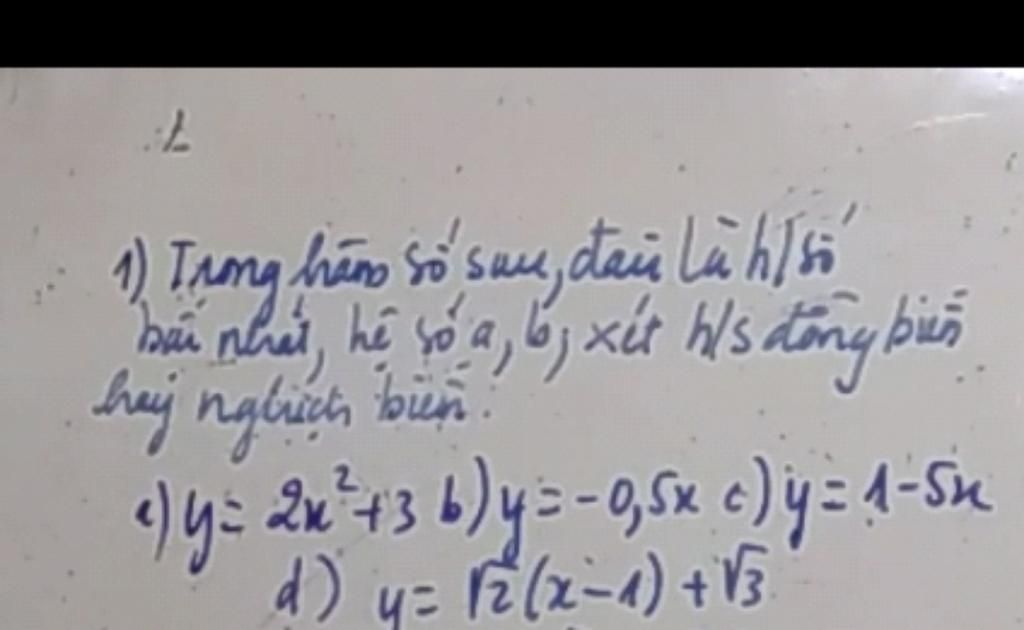 1) Trong hàm số sau, đâu là h/số
bậc nhất, hệ số a, b; xét h/s đồng biến
hay nghịch biến:
a) y = 2x² + 3 b) y = -0,5x c) y = 1 - 5x
d) y = √2(x - 1) + √3